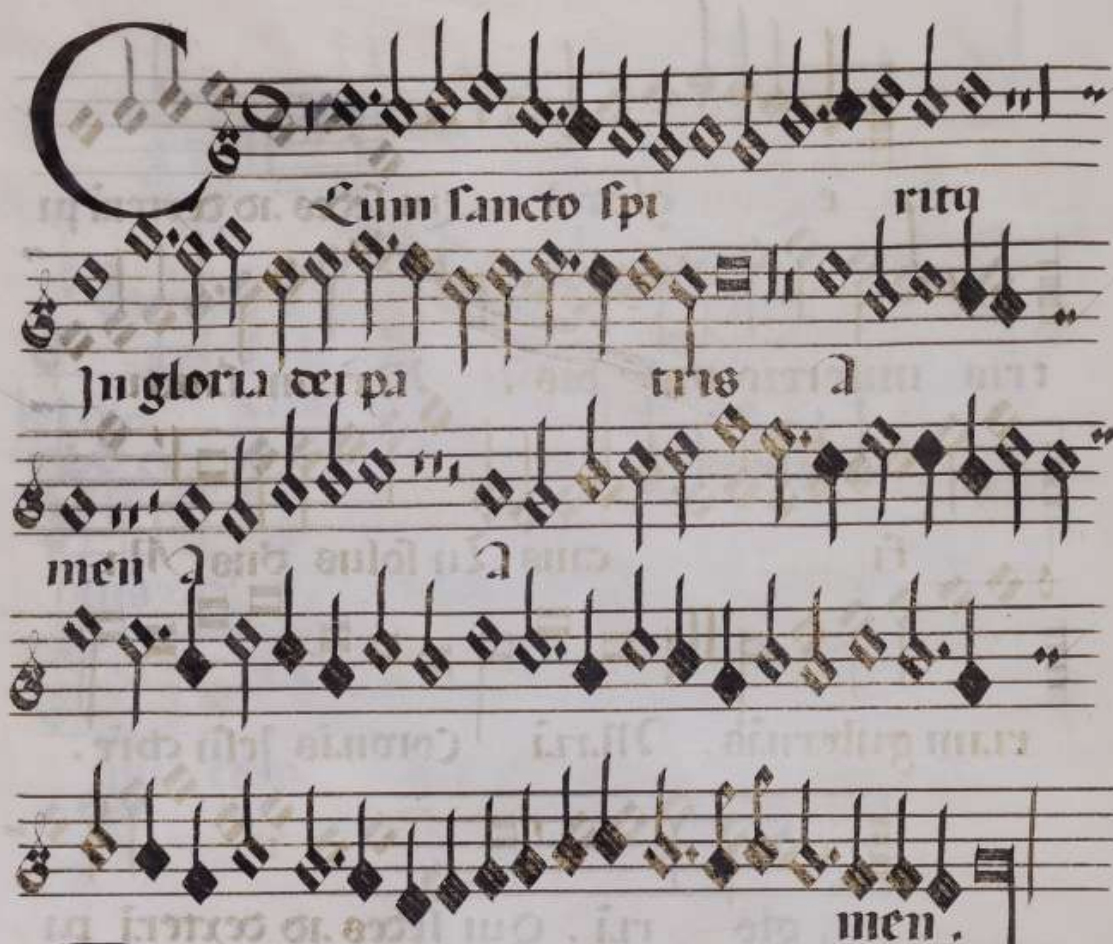 Cum sancto spi ritu
In gloria dei pa tris A
men A A
men.